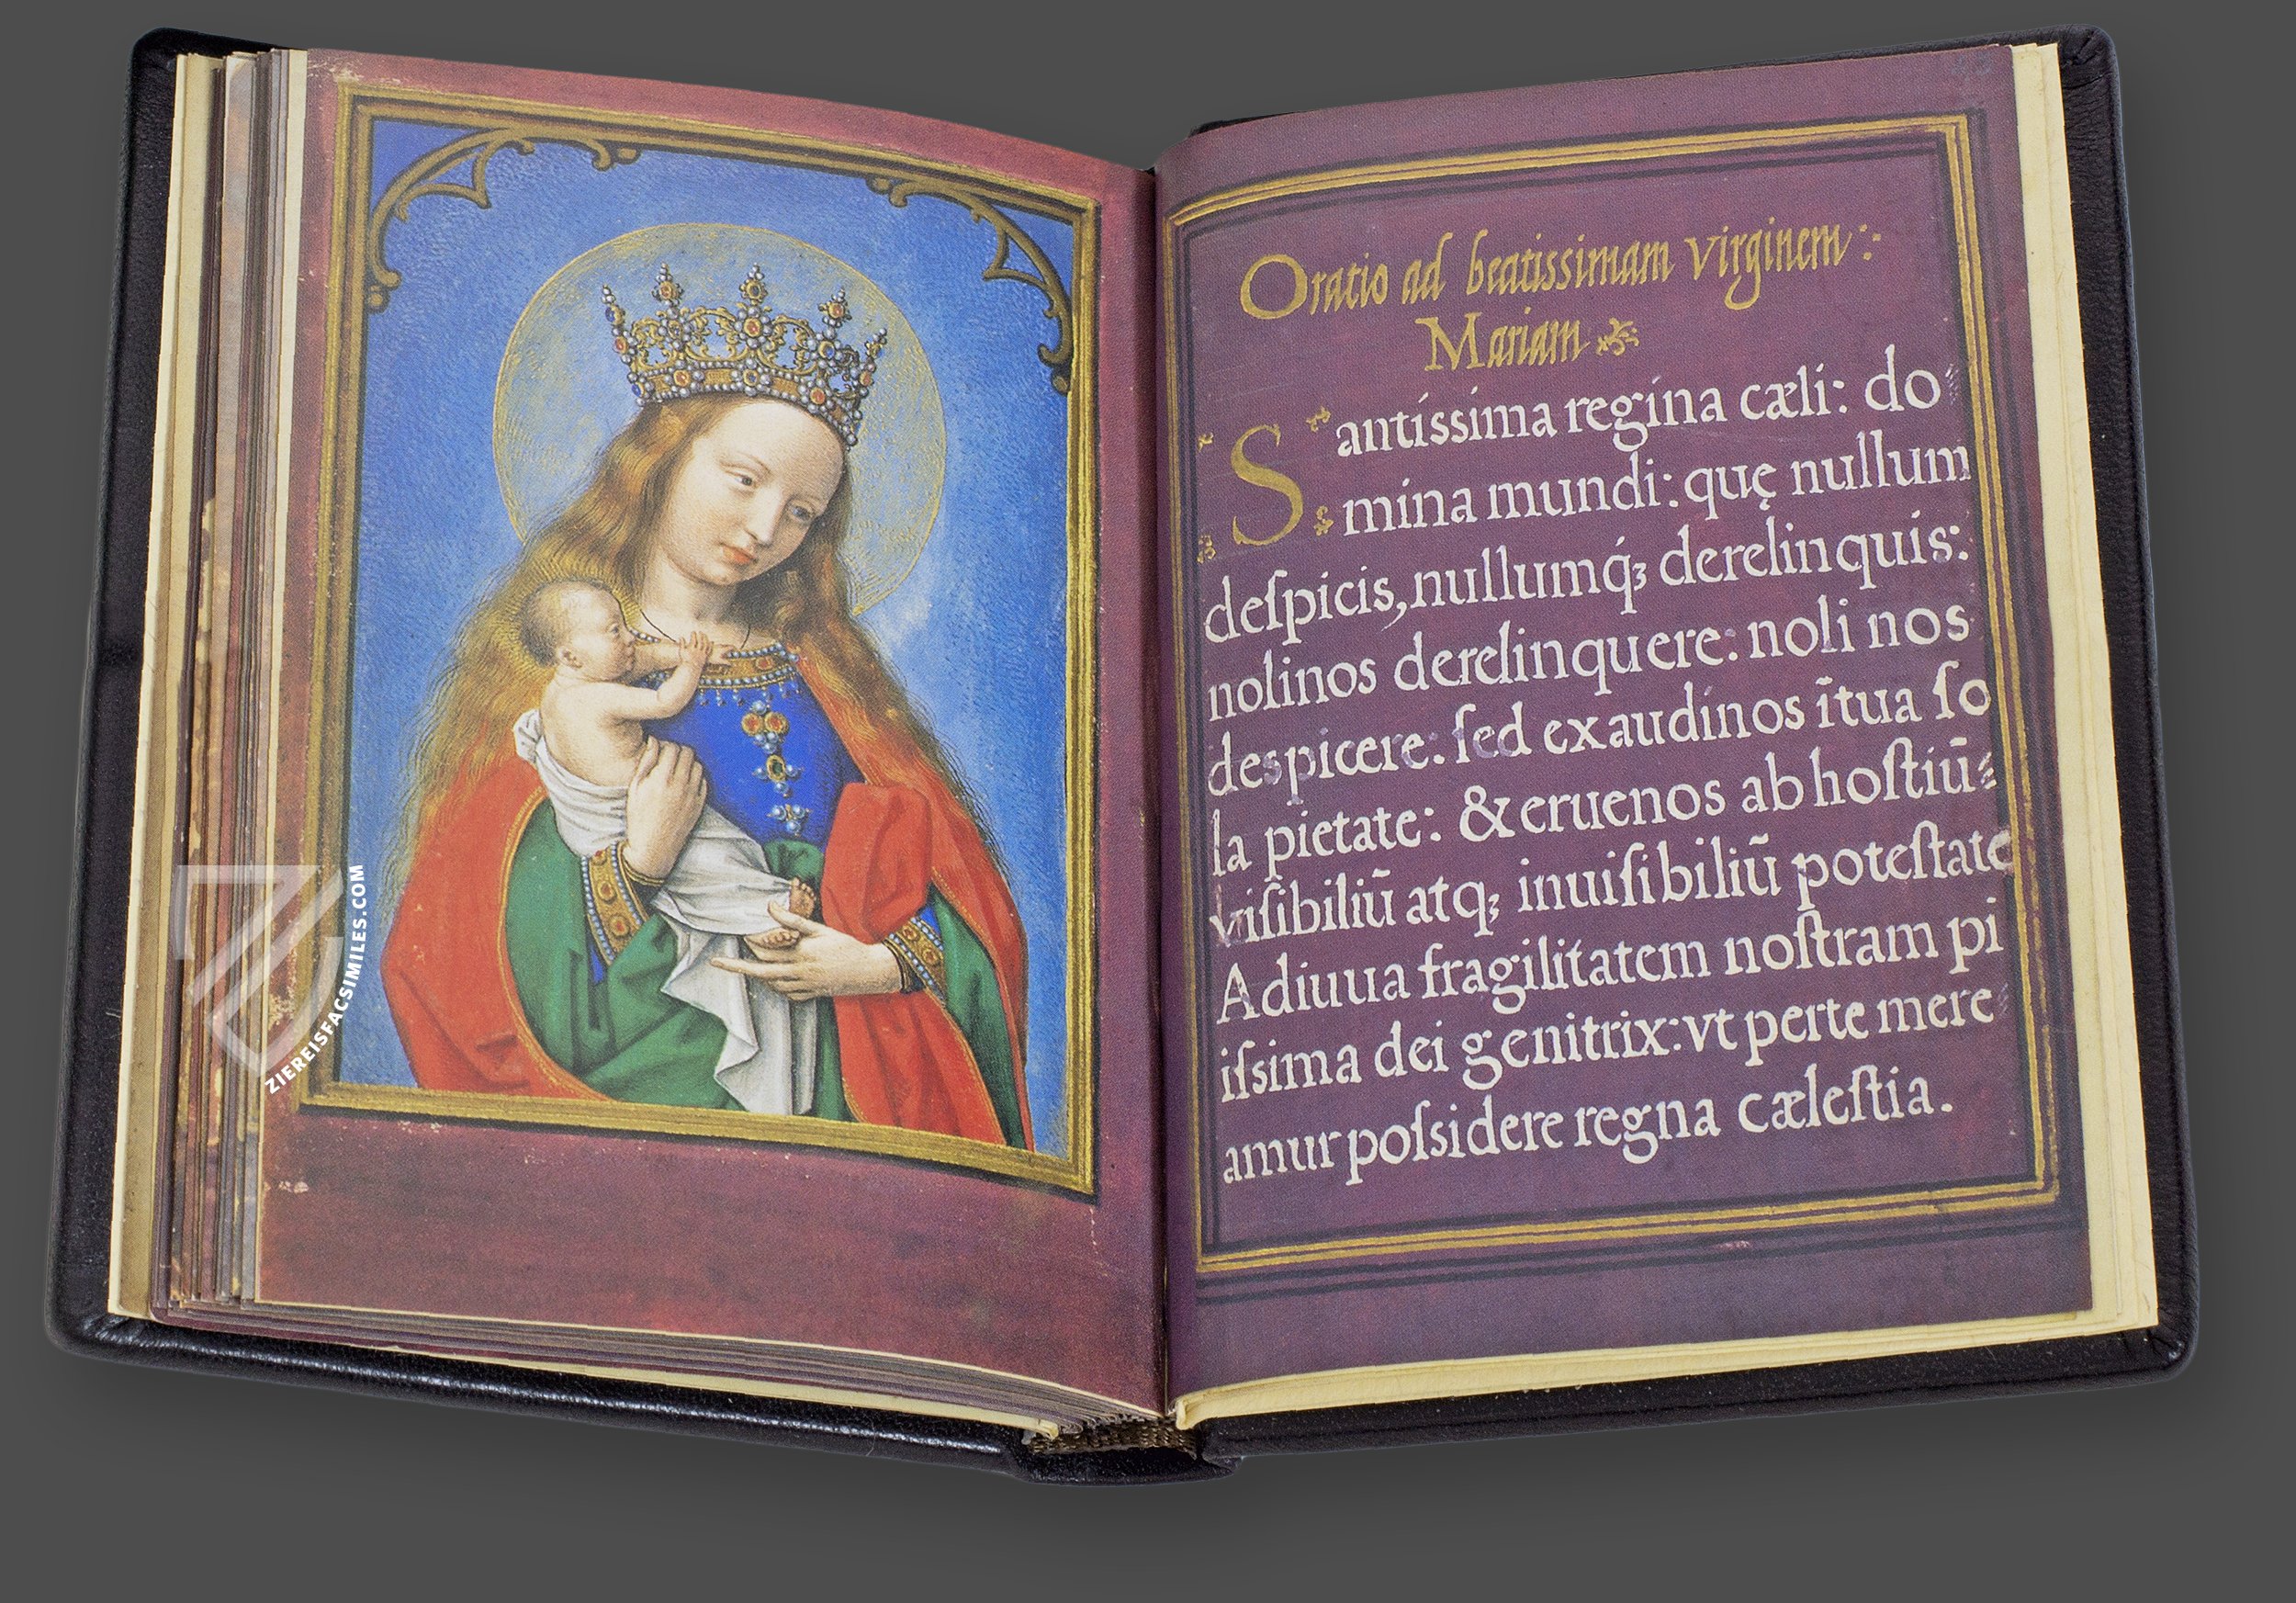 ZIEREISFACSIMILES.COM
Oratio ad beatissimam Virginem:
Mariam
Santissima regina cæli: do
mina mundi: quę nullum
deſpicis, nullumq́ꝫ derelin quis:
nolinos derelinquere: noli nos
despicere: ſed exaudinos ĩtua ſo
la pietate: & eruenos ab hoſtiū
viſibiliū atqꝫ inuiſibiliū poteſtate
Adiuua fragilitatem noſtram pi
iſsima dei genitrix: vt perte mere
amur poſsidere regna cæleſtia.